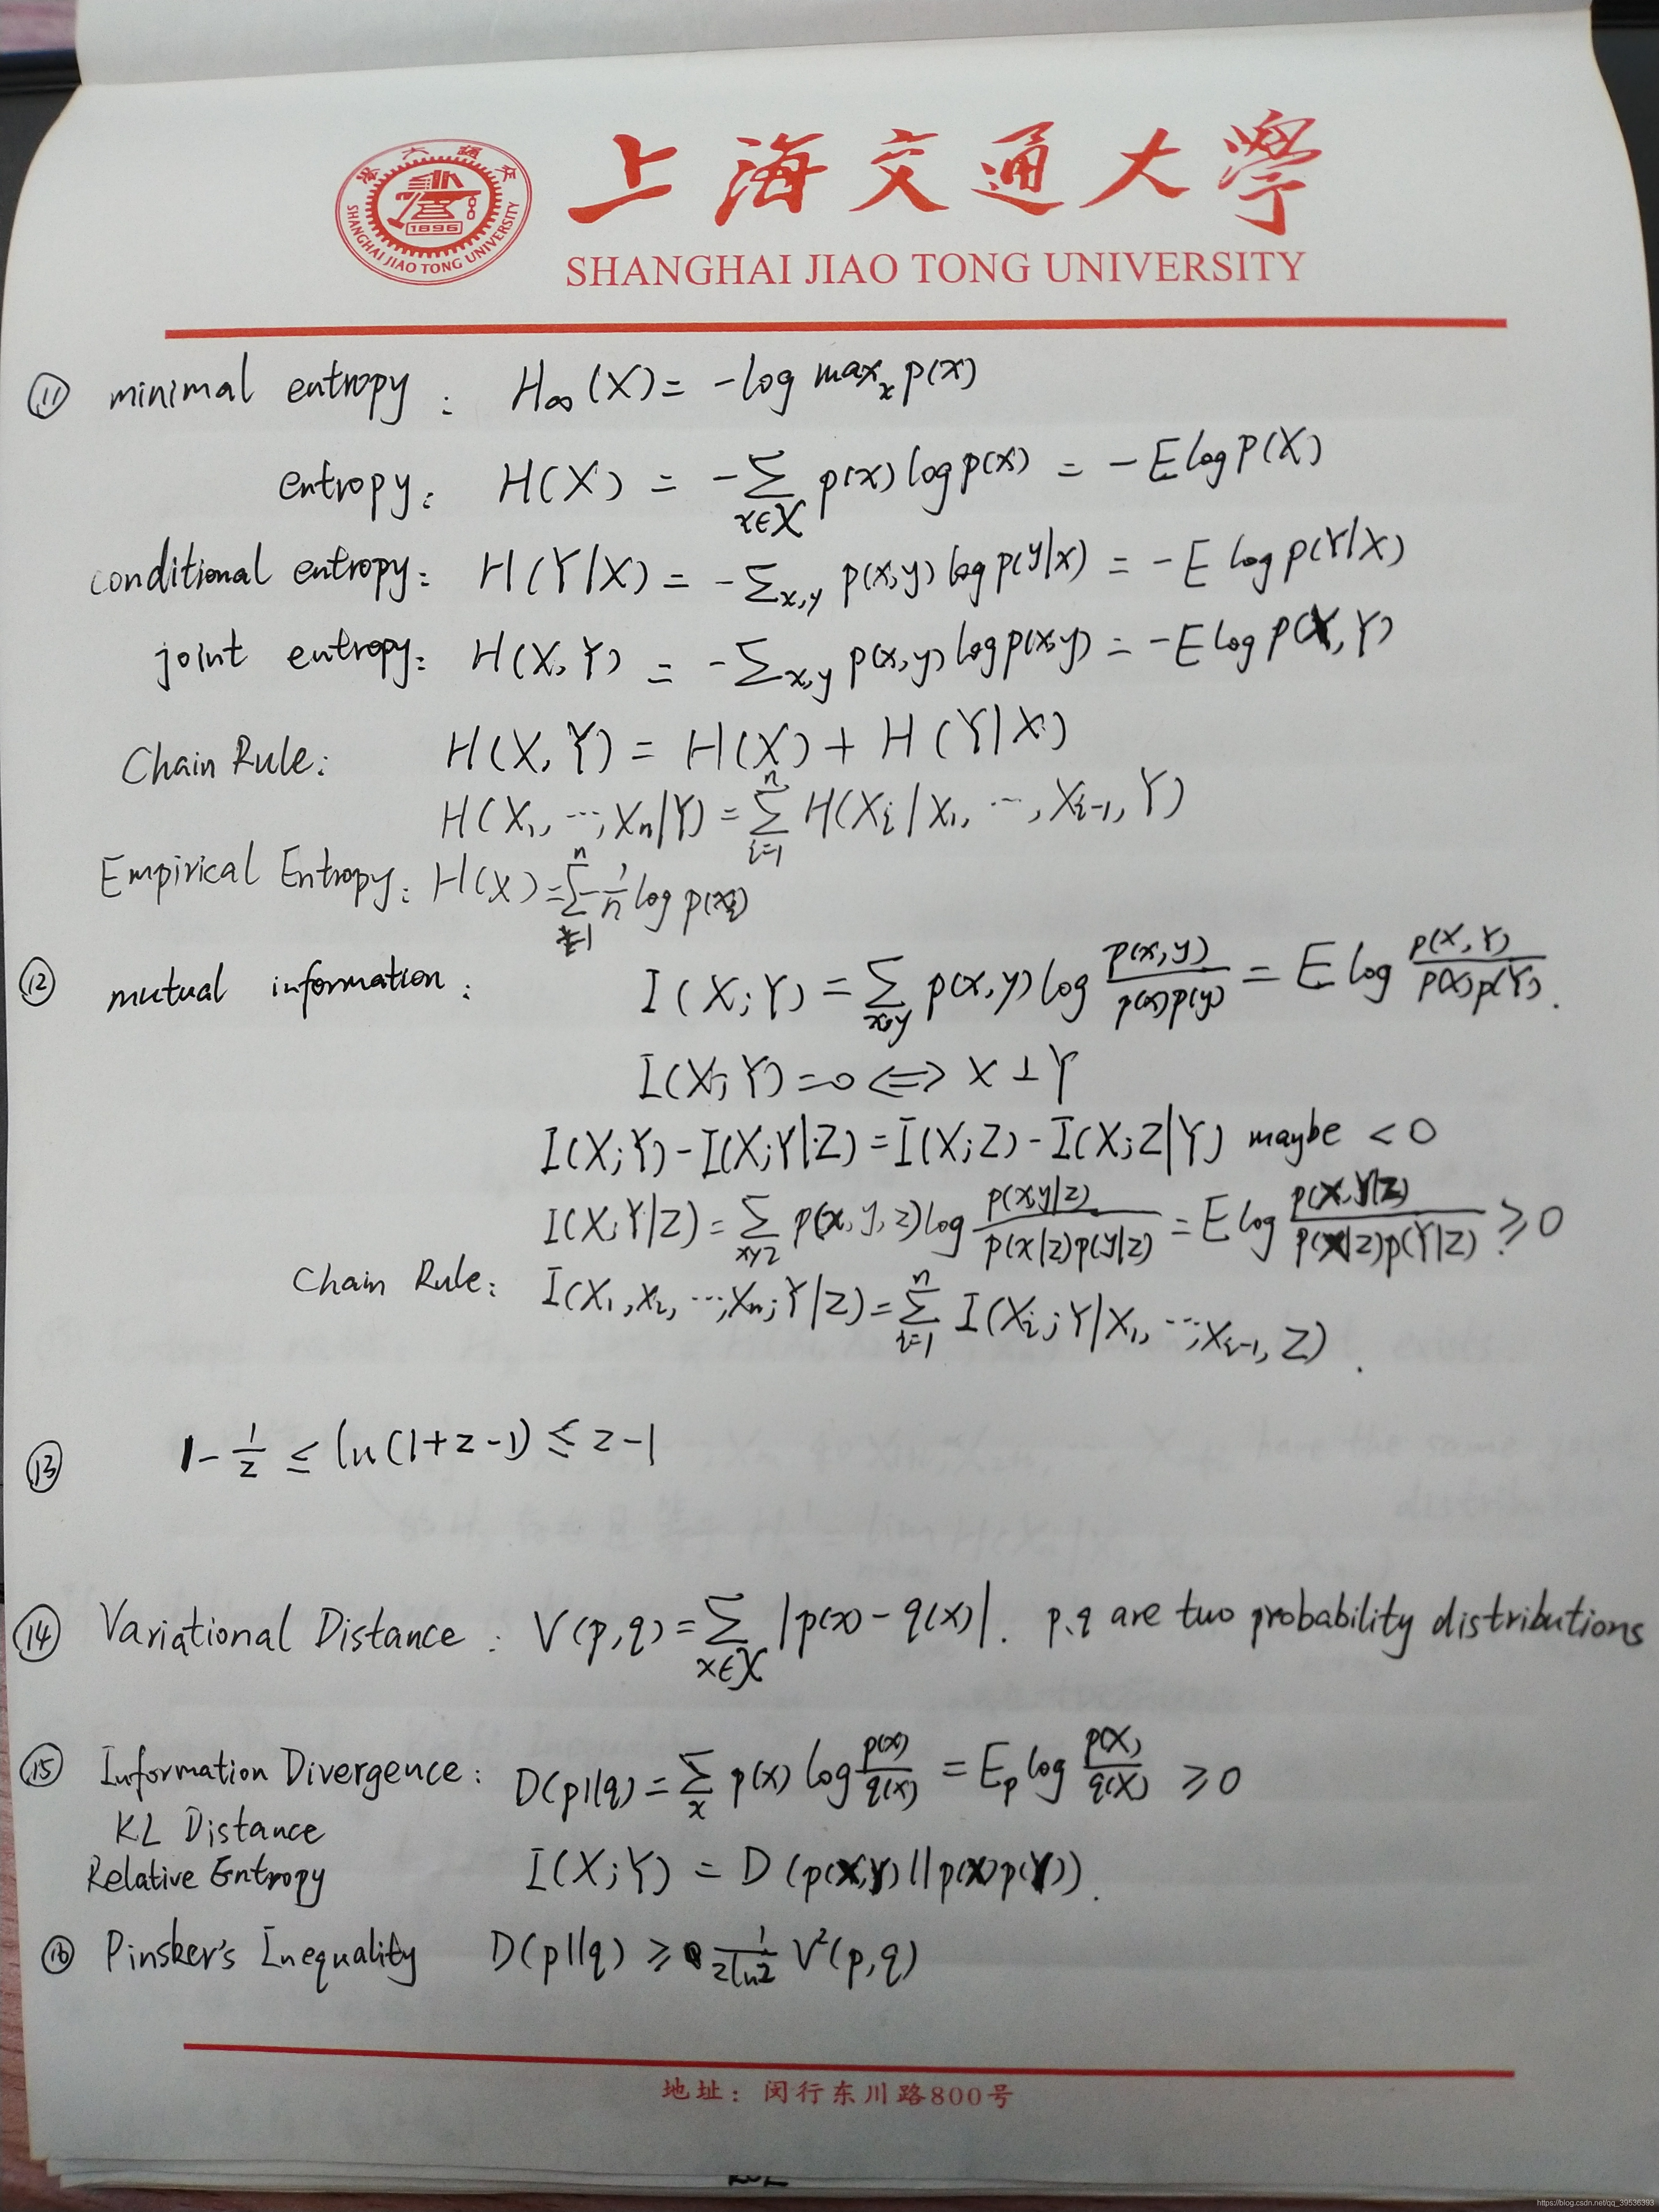 上海交通大學
SHANGHAI JIAO TONG UNIVERSITY
1896
SHANGHAI JIAO TONG UNIVERSITY
⑪ minimal entropy: H∞(X) = -log maxₓ p(x)
entropy: H(X) = -∑_{x∈X} p(x) log p(x) = -E log p(X)
conditional entropy: H(Y|X) = -∑_{x,y} p(x,y) log p(y|x) = -E log p(Y|X)
joint entropy: H(X,Y) = -∑_{x,y} p(x,y) log p(x,y) = -E log p(X,Y)
Chain Rule: H(X,Y) = H(X) + H(Y|X)
H(X₁, ⋯, Xₙ|Y) = ∑_{i=1}^{n} H(Xᵢ|X₁, ⋯, Xᵢ₋₁, Y)
Empirical Entropy: H(X) = ∑_{i=1}^{n} -1/n log p(xᵢ)
⑫ mutual information: I(X;Y) = ∑_{x,y} p(x,y) log p(x,y)/p(x)p(y) = E log p(X,Y)/p(X)p(Y).
I(X;Y)=0 ⟺ X⊥Y
I(X;Y) - I(X;Y|Z) = I(X;Z) - I(X;Z|Y) maybe < 0
I(X;Y|Z) = ∑_{xyz} p(x,y,z) log p(x,y|z)/p(x|z)p(y|z) = E log p(X,Y|Z)/p(X|Z)p(Y|Z) ≥ 0
Chain Rule: I(X₁,X₂, ⋯, Xₙ;Y|Z) = ∑_{i=1}^{n} I(Xᵢ;Y|X₁, ⋯, Xᵢ₋₁, Z).
⑬ 1 - 1/z ≤ ln(1+z-1) ≤ z-1
⑭ Variational Distance: V(p,q) = ∑_{x∈X} |p(x) - q(x)|. p,q are two probability distributions
⑮ Information Divergence: D(p||q) = ∑ₓ p(x) log p(x)/q(x) = Eₚ log p(X)/q(X) ≥ 0
KL Distance
Relative Entropy I(X;Y) = D(p(X,Y)||p(X)p(Y)).
⑯ Pinsker's Inequality D(p||q) ≥ 1/(2ln2) V²(p,q)
地址：闵行东川路800号
https://blog.csdn.net/qq_39536393